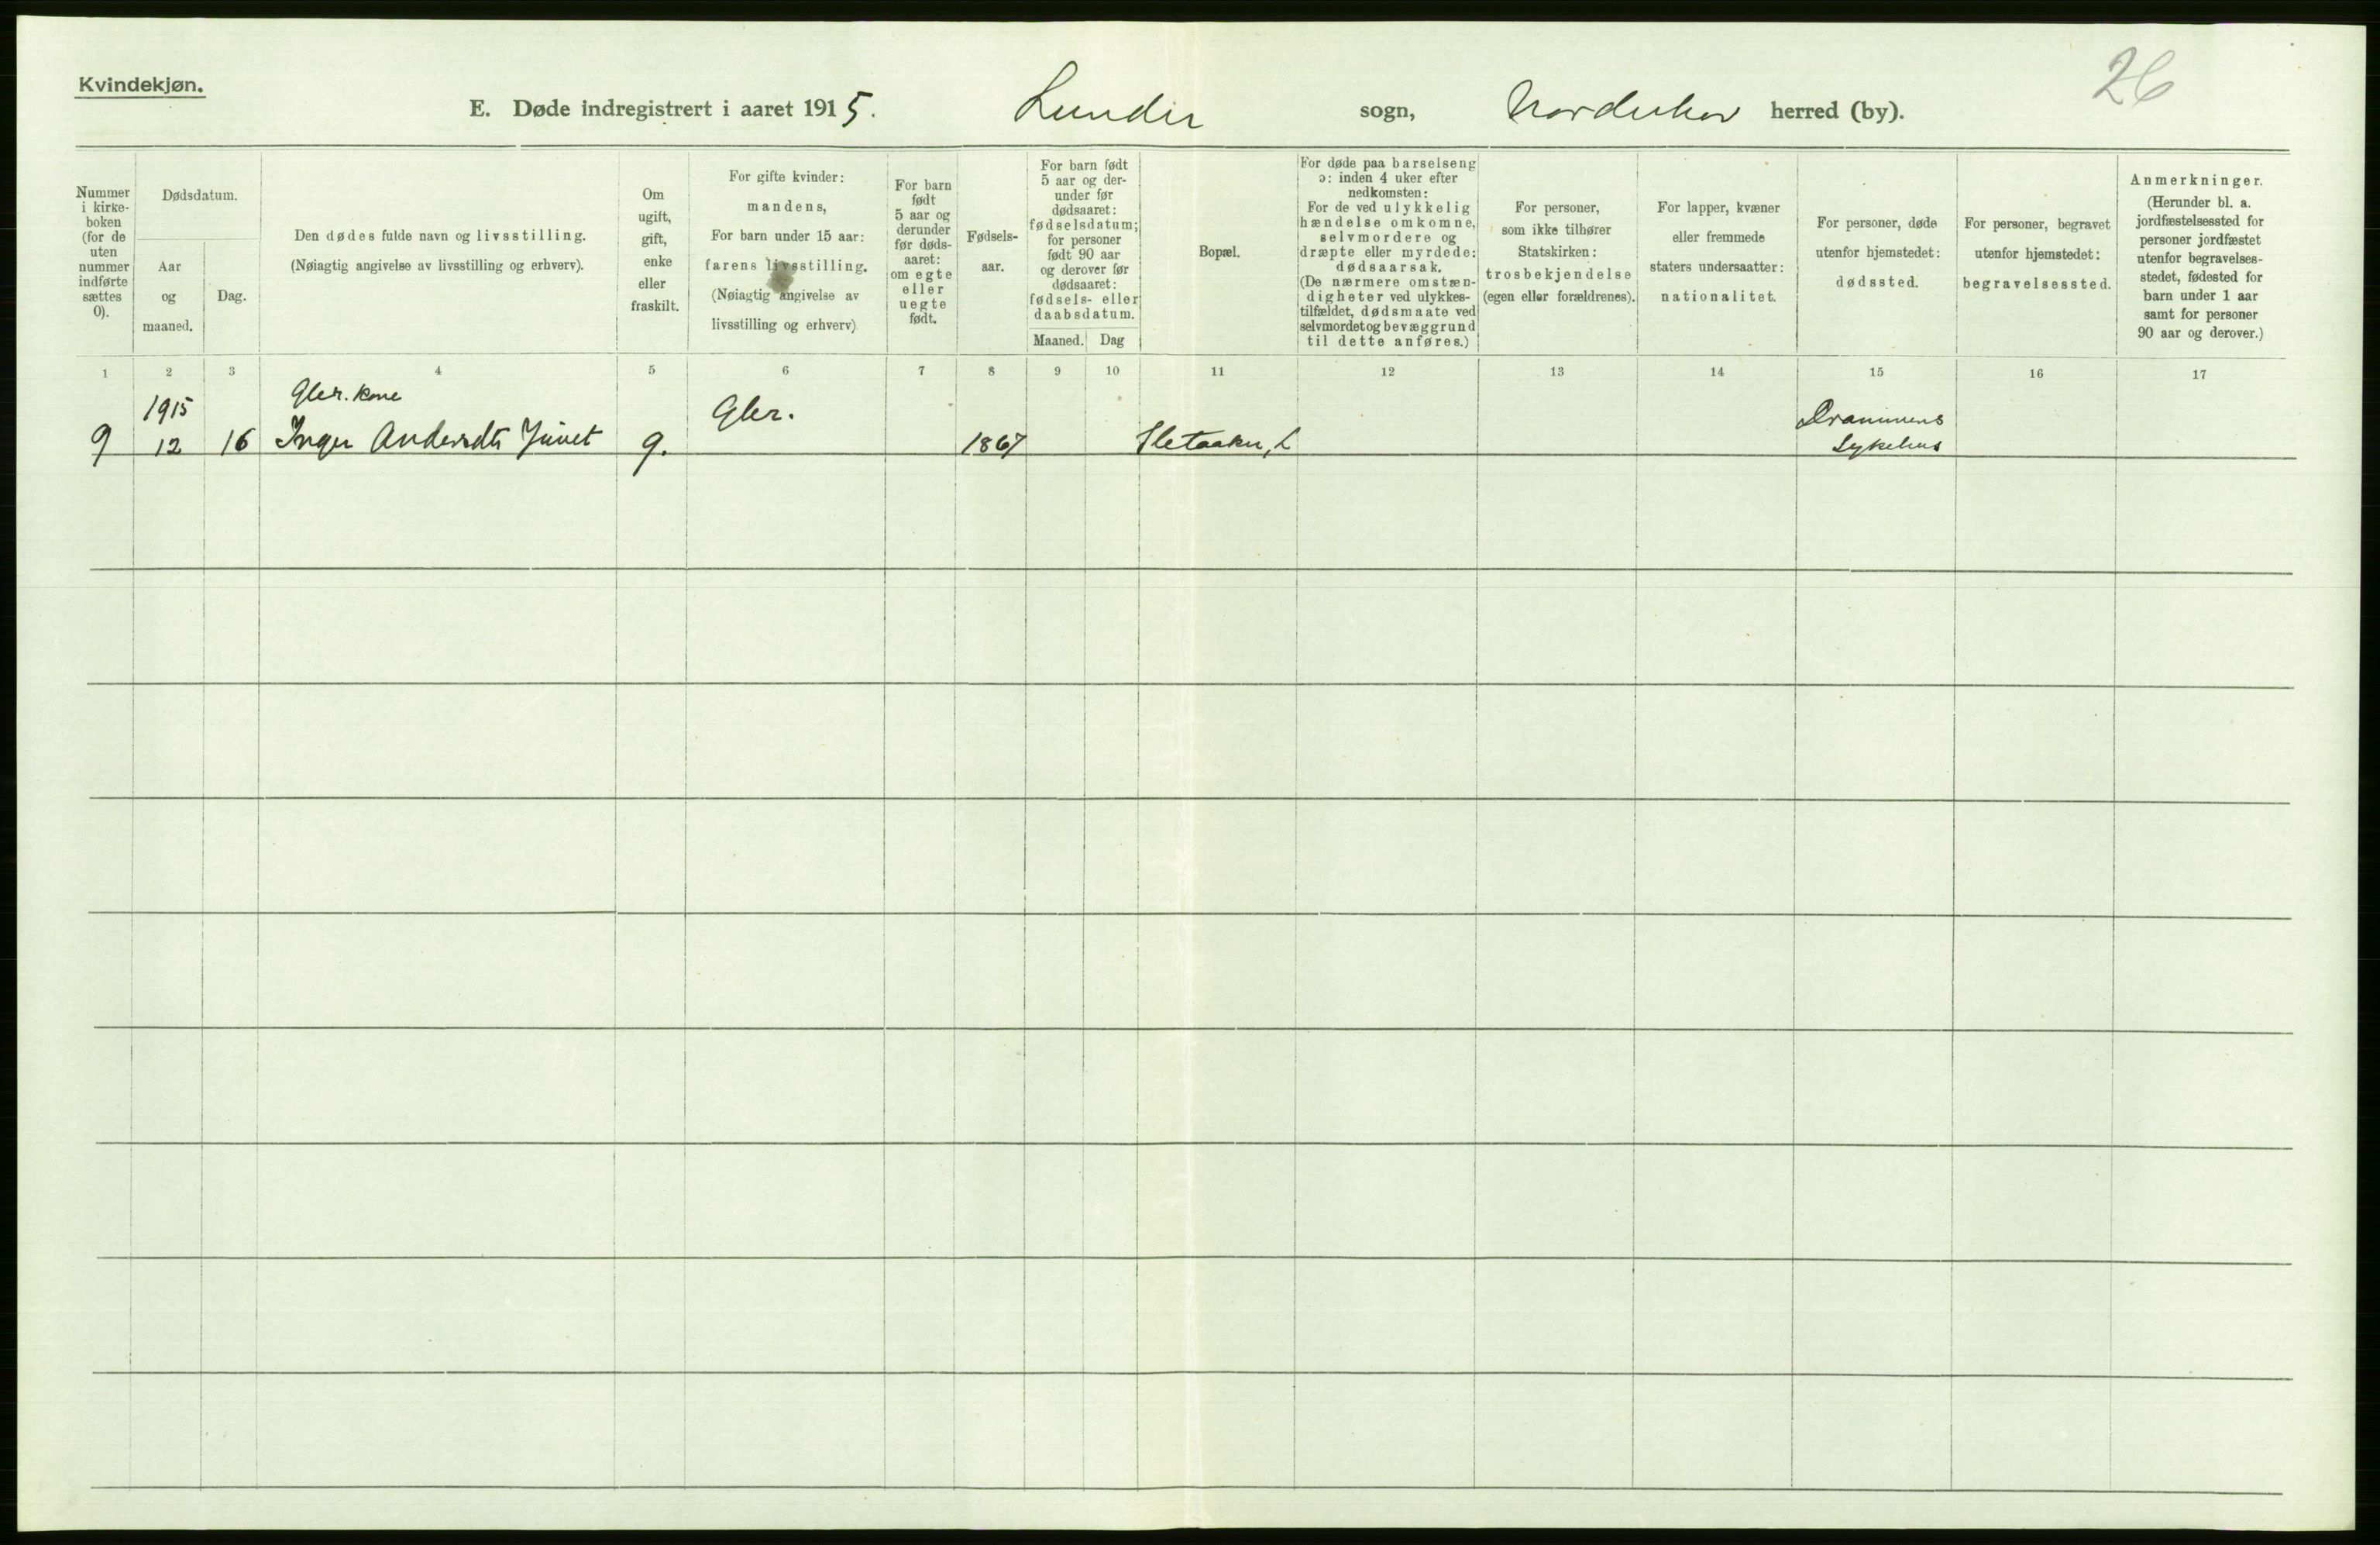 Kvindekjøn.
26
E. Døde indregistrert i aaret 1915. Lunder sogn, Norderhov herred (by).
Nummer
i kirke-
boken
(for de
uten
nummer
indførte
sættes
0).
Dødsdatum.
Aar
og
maaned.
Dag.
Den dødes fulde navn og livsstilling.
(Nøiagtig angivelse av livsstilling og erhverv).
Om
ugift,
gift,
enke
eller
fraskilt.
For gifte kvinder:
mandens,
For barn under 15 aar:
farens livsstilling.
(Nøiagtig angivelse av
livsstilling og erhverv)
For barn
født
5 aar og
derunder
før døds-
aaret:
om egte
eller
uegte
født.
Fødsels-
aar.
For barn født
5 aar og der-
under før
dødsaaret:
fødselsdatum;
for personer
født 90 aar
og derover før
dødsaaret:
fødsels- eller
daabsdatum.
Maaned. Dag
Bopæl.
For døde paa barselseng
ɔ: inden 4 uker efter
nedkomsten:
For de ved ulykkelig
hændelse omkomne,
selvmordere og
dræpte eller myrdede:
dødsaarsak.
(De nærmere omstæn-
digheter ved ulykkes-
tilfældet, dødsmaate ved
selvmordet og bevæggrund
til dette anføres.)
For personer,
som ikke tilhører
Statskirken:
trosbekjendelse
(egen eller forældrenes).
For lapper, kvæner
eller fremmede
staters undersaatter:
nationalitet.
For personer, døde
utenfor hjemstedet:
dødssted.
For personer, begravet
utenfor hjemstedet:
begravelsessted.
Anmerkninger.
(Herunder bl. a.
jordfæstelsessted for
personer jordfæstet
utenfor begravelses-
stedet, fødested for
barn under 1 aar
samt for personer
90 aar og derover.)
1 2 3 4 5 6 7 8 9 10 11 12 13 14 15 16 17
1915 Gbr. kone Gbr. Drammens
9 12 16 Inger Andersdtr g. 1867 Sletaaker, L Sykehus